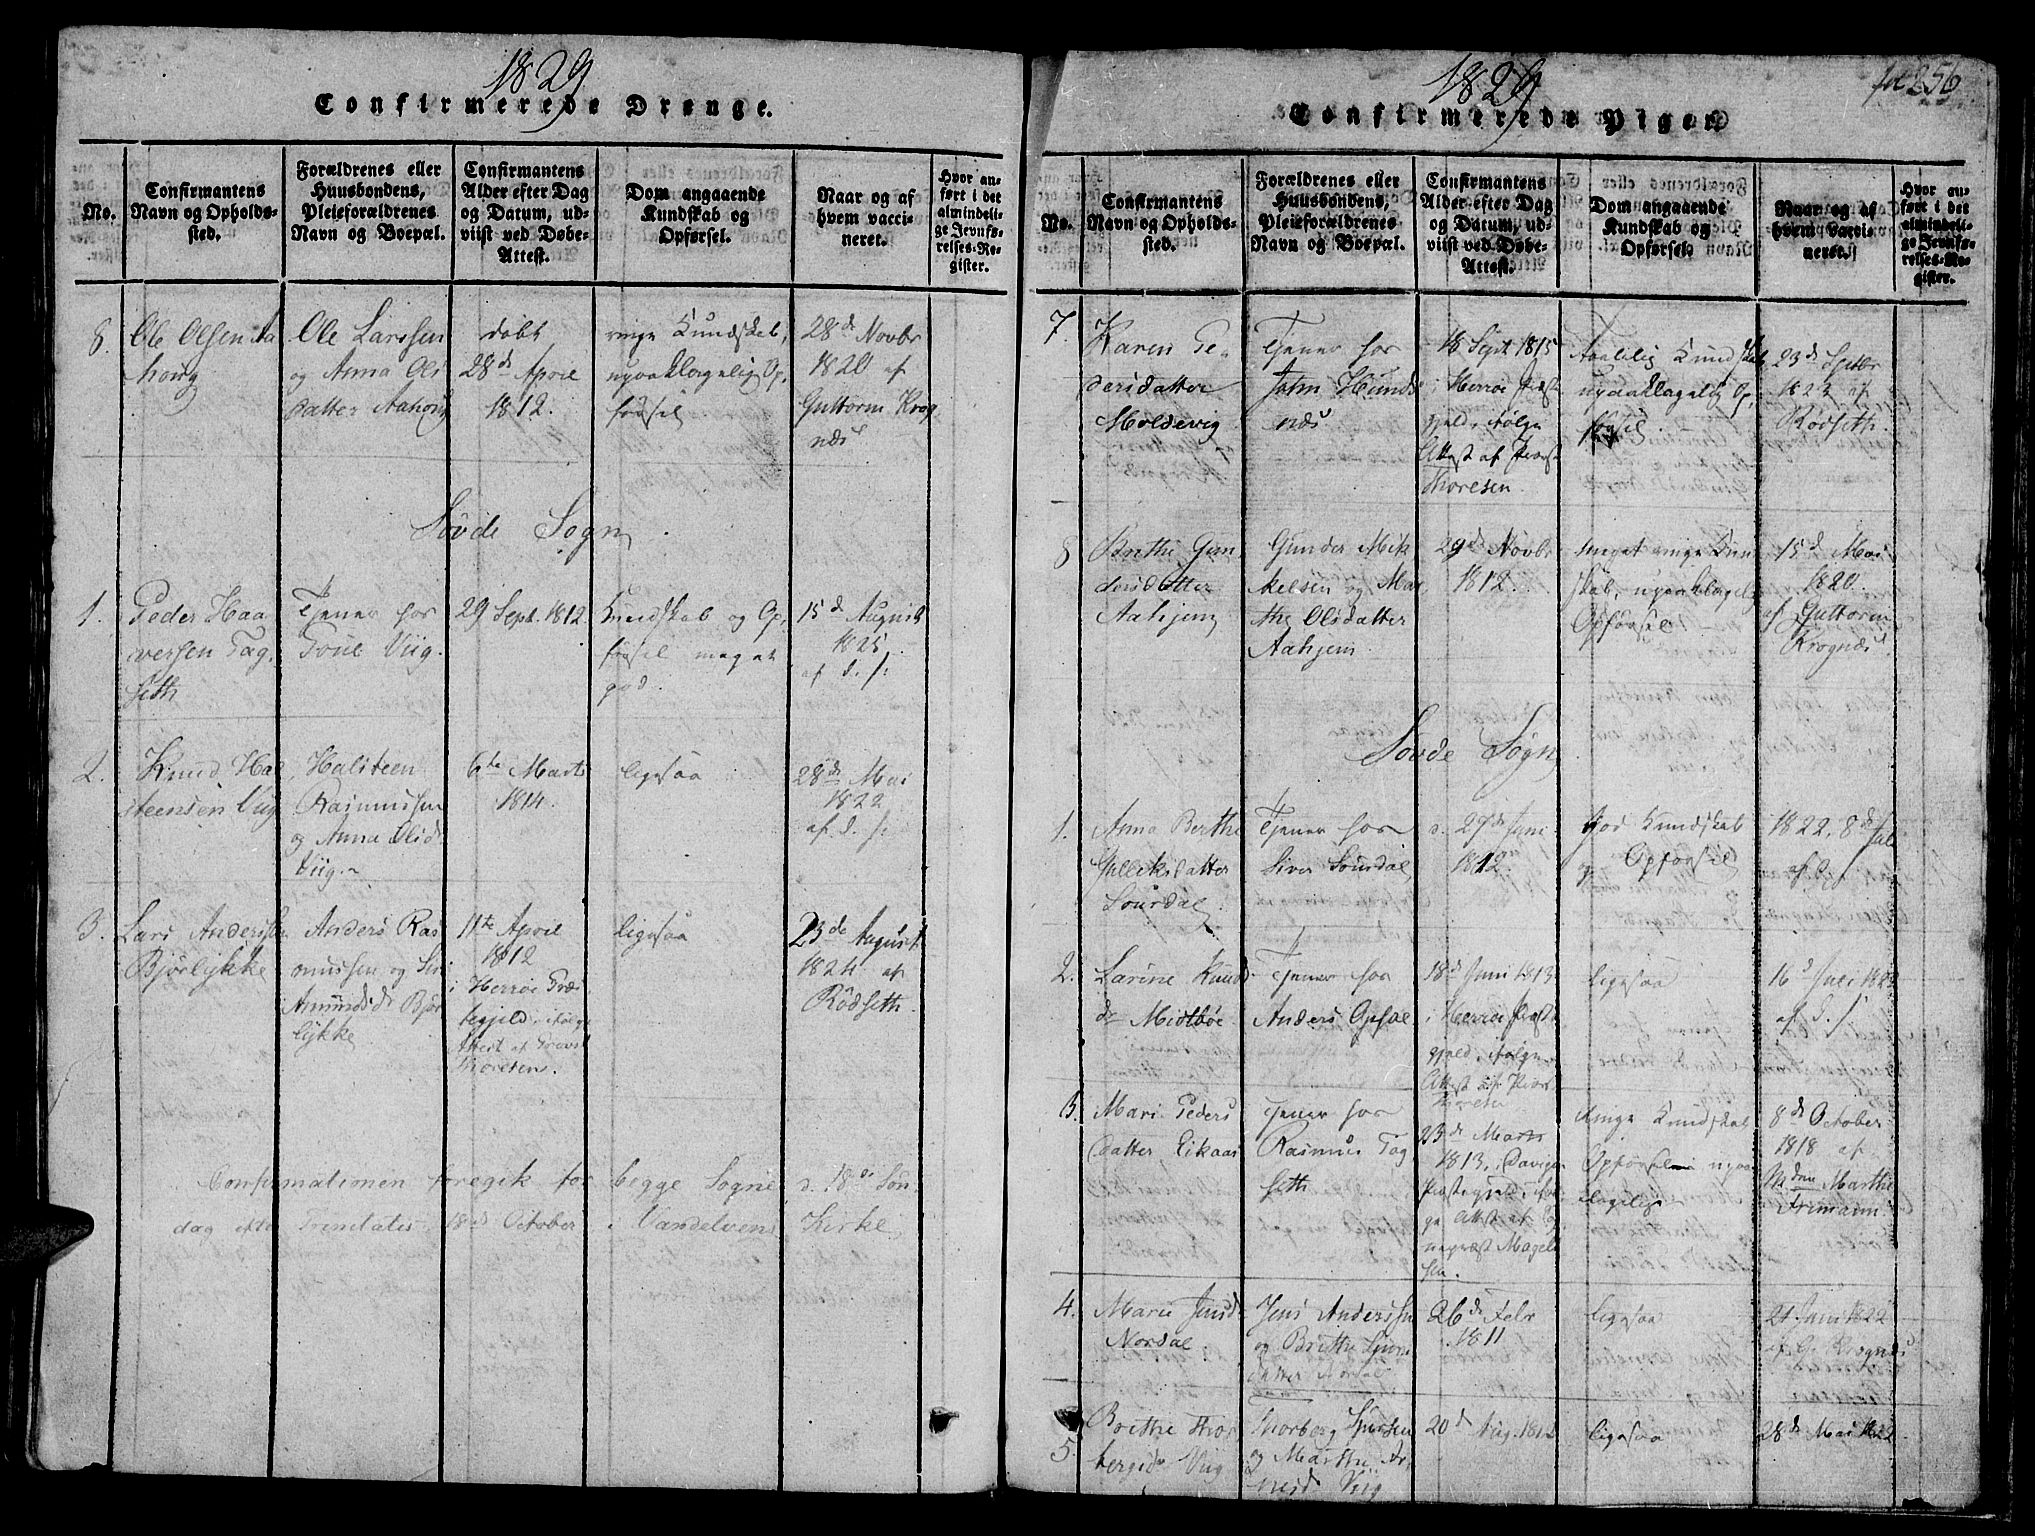 1829
Confirmerede Drenge.
No.
Confirmantens
Navn og Opholds-
sted.
Forældrenes eller
Huusbondens,
Pleieforældrenes
Navn og Boepæl.
Confirmantens
Alder efter Dag
og Datum, ud-
viist ved Døbe-
Attest.
Dom angaaende
Kundskab og
Opførsel.
Naar og af
hvem vacci-
neret.
Hvor an-
ført i det
almindeli-
ge Jevnfø-
relses-Re-
gister.
8.
Ole Olsen Aa
hong
Ole Larssen
og Anna Ols
datter Aahong
døbt
28de April
1812.
ringe Kundskab,
upaaklagelig Op,
førsel
28de Novbr
1820 af
Guttorm Krog
næs
Søvde Sogn.
1.
Peder Haa
versen Tag,
seth
Tjener for
Toue Viig.
29 Sept. 1812.
Kundskab og Op,
førsel meget
god.
15d August
1825
af d. s:
2.
Knud Hal
steensen Viig
Halsteen
Rasmussen
og Anna Olsd
Viig.
6te Marts
1814.
ligesaa
28de Mai
1822
af d. s:
3.
Lars Anderssen
Bjørlykke
Anders Ras
mussen og Siri
Amundsdr Bjør
lykke
11te April
1812
i Herrøe Præ
stegjeld, ifølge
Attest af Provst
Thoresen.
ligesaa
23de August
1824 af
Rødseth.
Confirmationen foregik for begge Sogne d. 18de Søn
dag efter Trinitatis, 18de October i Vandelvens Kirke
fol 256
1829
Confirmerede Piger.
No.
Confirmantens
Navn og Opholds-
sted.
Forældrenes eller
Huusbondens,
Pleieforældrenes
Navn og Boepæl.
Confirmantens
Alder efter Dag
og Datum, ud-
viist ved Døbe-
Attest.
Dom angaaende
Kundskab og
Opførsel.
Naar og af
hvem vacci-
neret.
Hvor an-
ført i det
almindeli-
ge Jevnfø-
relses-Re-
gister.
7.
Karen Pe
dersdatter
Moldevig
Tjener for
John Hunds
næs
18 Sept 1815
i Herrøe Præst
gjeld, ifølge
Attest af Provst
Thoresen.
Taalelig Kundskab
upaaklagelig Op,
førsel.
23de Septbr
1823 af
Rødseth.
8
Brithe Gun
dersdatter
Aahjem
Gunder Mik
kelsen og Mar
the Olsdatter
Aahjem
29de Novbr
1812.
meget ringe Kund
skab, upaaklagelig
Opførsel
15d Mai
1820.
af Guttorm
Krognæs.
Søvde Sogn
1.
Anna Berthe
Gulleksdatter
Sourdal
Tjener for
Siver Sourdal
d. 27de Juni
1812.
god Kundskab
og Opførsel
1822, 8de Juli
af d. s.
2.
Larine Knuds
dr Midtbøe
Tjener for
Anders Opsal
18d Juni 1813
i Herrøe Præst
gjeld, ifølge
Attest af Provst
Thoresen
ligesaa
16d Juli 1822
af d. s
3.
Mari Peders
datter Eikaas
Tjener for
Rasmus Tag
seth
23de Marts
1813, i Davigen
Præstegjeld, iføl
ge Attest af Sog
nepræst Magels
sen.
Ringe Kundskab
Opførsel upaa
klagelig
8de October
1818 af
Mdme Marthe
Frimann
4.
Marie Jensdr
Nordal
Jens Anderssen
og Brithe
datter Nordal
26de Febr
1811
ligesaa
21 Juni 1822
af G. Krognæs
5
Brithe Thor
bergsdr Viig
Thorberg Iversen
og Marthe Ar
nesd Viig
20d Aug. 1812
ligesaa
28de Mai 1822